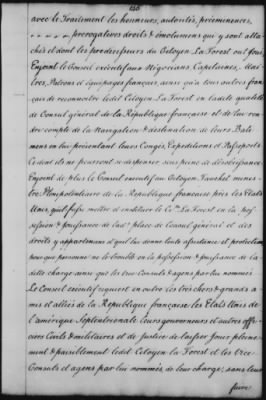 136
avec le Traitement les honneurs, autorités, prééminences,
prérogatives droits & émolumens qui y sont atta-
chés et dont les prédecesseurs du Citoyen La Forest ont joui.
Enjoint le Conseil exécutif aux Négocians, Capitaines, Maî-
tres, Patrons et équipages français, ainsi qu'à tous autres fran-
çais de reconnaitre ledit Citoyen La Forest en ladite qualité
de Consul général de la République française et de lui ren-
dre compte de la Navigation & destination de leurs Bati-
mens en lui présentant leurs Congés, Expéditions et Passeports
Ce dont ils ne pourront se dispenser sous peine de désobéissance.
Enjoint de plus le Conseil executif au Citoyen Fauchet minis-
tre Plénipotentiaire de la République française près les Etats
Unis, qu'il fasse mettre et instituer le Cen. La Forest en la pos-
session & jouissance de lad.e place de Consul général et des
droits y appartenans et qu'il lui donne toute assistance et protection
pour que personne ne le trouble en la possession & jouissance de la
dite charge ainsi que les vice Consuls & agens par lui nommés.
Le Conseil exécutif requiert en outre les très chers & grands a
mis et alliés de la République française les Etats Unis de
l'amérique Septentrionale leurs gouverneurs et autres offi-
ciers Civils & militaires et de Justice de laisser jouir pleine-
ment & paisiblement ledit Citoyen La Forest et les Vice
Consuls et agens par lui nommés, de leur charge, sans leur
faire